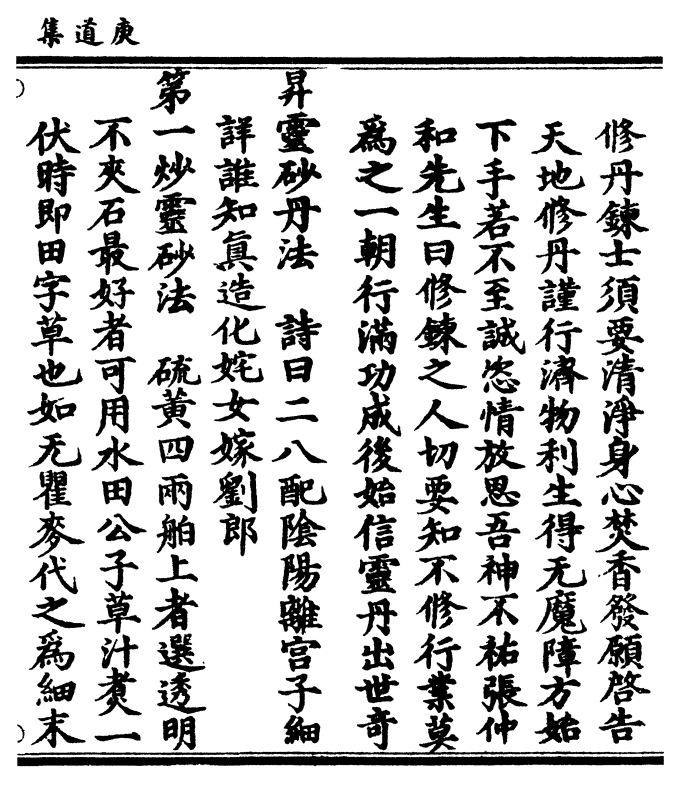 庚道集
修丹鍊士須要清淨身心焚香發願啓告
天地修丹謹行濟物利生得无魔障方始
下手若不至誠恣情放思吾神不祐張仲
和先生曰修鍊之人切要知不修行業莫
爲之一朝行滿功成後始信靈丹出世竒
昇靈砂丹法　詩曰二八配陰陽離宫子細
詳誰知眞造化姹女嫁劉郎
第一炒靈砂法　硫黄四兩舶上者選透明
不夾石最好者可用水田公子草汁煑一
伏時即田字草也如无瞿麥代之爲細末